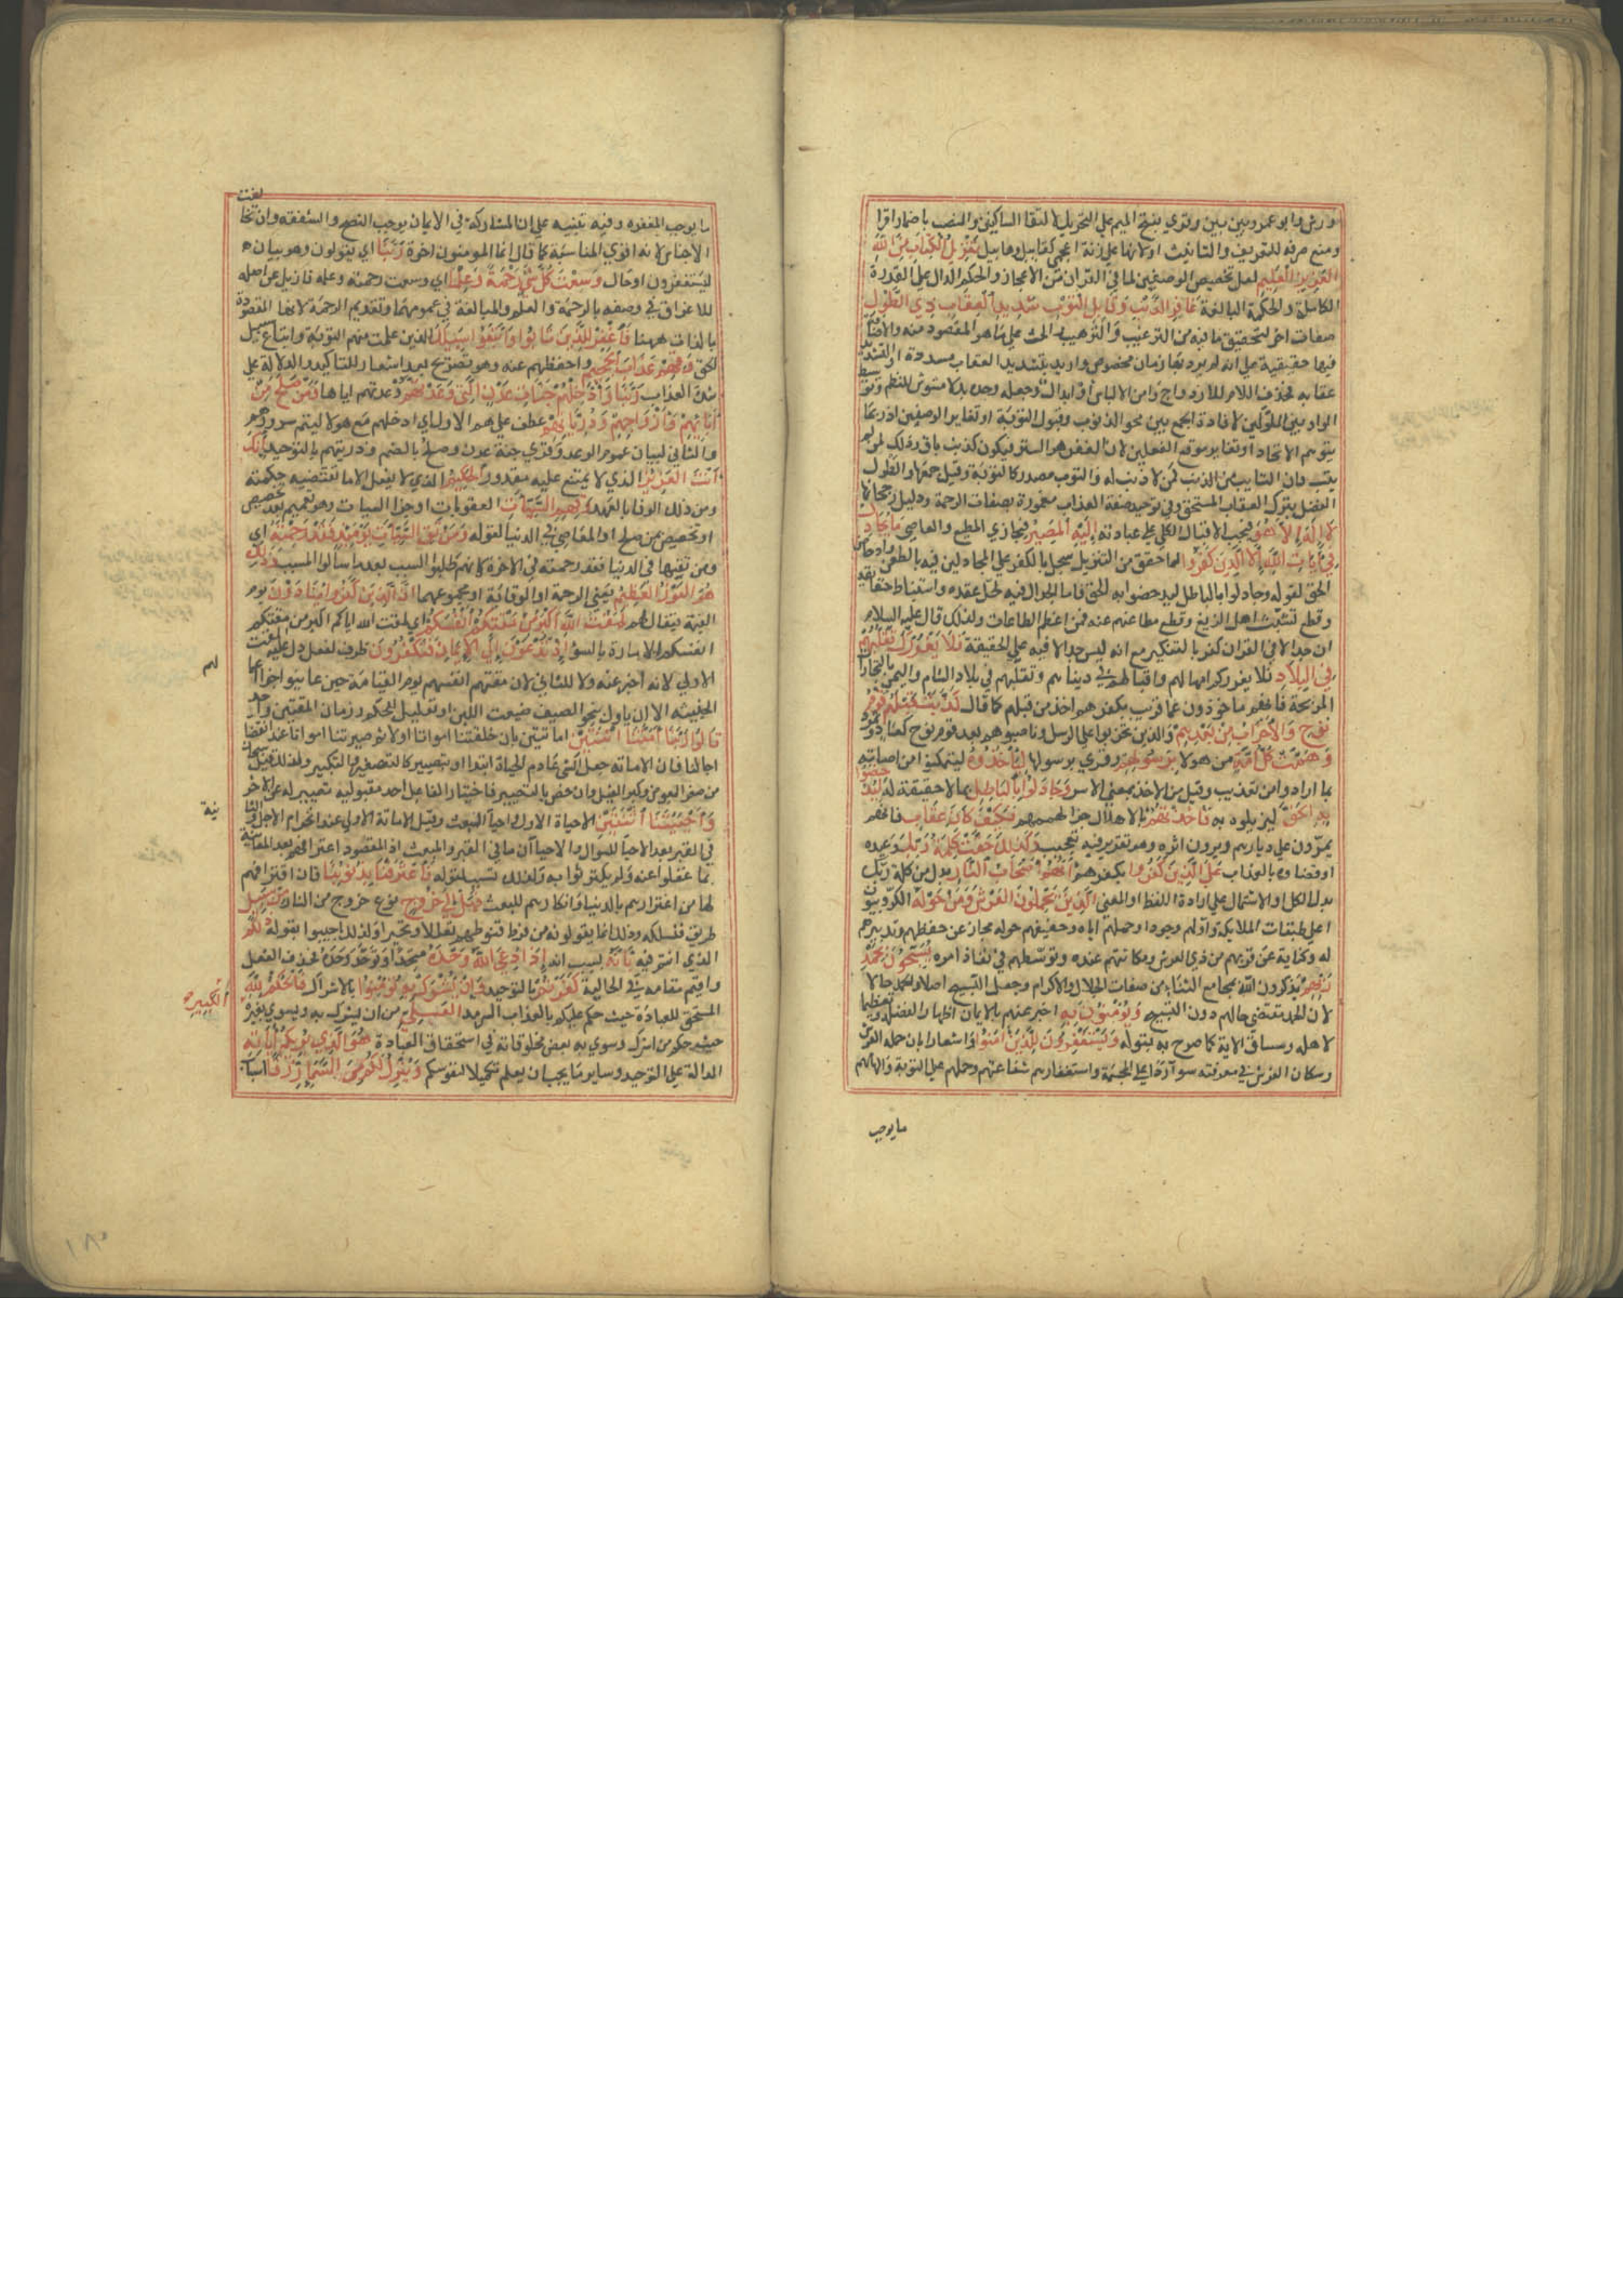 وورش وابو عمرو بين بين وقري بفتح الميم علي التحريك لالتقا الساكنين والنصب باضمار اقرا
ومنع صرفه للتعريف والتانيث اولانها علي زنة اعجمي كقابيل وهابيل تَنْزِيلُ الْكِتَابِ مِنَ اللَّهِ
الْعَزِيزِ الْعَلِيمِ لعل تخصيص الوصفين لما في القران من الاعجاز والحكم الدال علي القدرة
الكاملة والحكمة البالغة غَافِرِ الذَّنْبِ وَقَابِلِ التَّوْبِ شَدِيدِ الْعِقَابِ ذِي الطَّوْلِ
صفات اخر لتحقيق ما فيه من الترغيب والترهيب والحث علي ما هو المقصود منه والاضافة
فيها حقيقية علي انه لم يرد بها زمان مخصوص واريد بشديد العقاب مشدده او الشديد
عقابه فحذف اللام للازدواج وامن الالباس او ابدال وجعله وحده بدلا مشوش للنظم وتوسيط
الواو بين الاولين لافادة الجمع بين محو الذنوب وقبول التوبة او تغاير الوصفين اذ ربما
يتوهم الاتحاد او تغاير موقع الفعلين لان الغفر هو الستر فيكون لذنب باق وذلك لمن لم
يتب فان التايب من الذنب كمن لا ذنب له والتوب مصدر كالتوبة وقيل جمعها والطول
الفضل بترك العقاب المستحق وفي توحيد صفة العذاب مغمورة بصفات الرحمة دليل رجحانها
لَا إِلَهَ إِلَّا هُوَ فيجب الاقبال الكلي علي عبادته إِلَيْهِ الْمَصِيرُ فيجازي المطيع والعاصي مَا يُجَادِلُ
فِي آيَاتِ اللَّهِ إِلَّا الَّذِينَ كَفَرُوا لما حقق من التنزيل سجل بالكفر علي المجادلين فيه بالطعن وادحاض
الحق لقوله وجادلوا بالباطل ليدحضوا به الحق فاما الجدال فيه لحل عقده واستنباط حقايقه
وقطع تشبث اهل الزيغ وقطع مطاعنهم عنه فمن اعظم الطاعات ولذلك قال عليه السلام
ان جدالا في القران كفر بالتنكير مع انه ليس جدالا فيه علي الحقيقة فَلَا يَغْرُرْكَ تَقَلُّبُهُمْ
فِي الْبِلَادِ فلا يغررك امهالهم واقبالهم في دنياهم وتقلبهم في بلاد الشام واليمن بالتجارات
المربحة فانهم ماخوذون عما قريب بكفرهم اخذ من قبلهم كما قال كَذَّبَتْ قَبْلَهُمْ قَوْمُ
نُوحٍ وَالْأَحْزَابُ مِنْ بَعْدِهِمْ والذين تحزبوا علي الرسل وناصبوهم بعد قوم نوح كعاد وثمود
وَهَمَّتْ كُلُّ أُمَّةٍ من هولا بِرَسُولِهِمْ وقري برسولها لِيَأْخُذُوهُ ليتمكنوا من اصابته
بما ارادوا من تعذيب وقتل من الاخذ بمعني الاسر وَجَادَلُوا بِالْبَاطِلِ بما لا حقيقة له لِيُدْحِضُوا
بِهِ الْحَقَّ ليزيلوه به فَأَخَذْتُهُمْ بالاهلاك جزا لهمهم فَكَيْفَ كَانَ عِقَابِ فانكم
تمرون علي ديارهم وترون اثره وهو تقرير فيه تعجيب وَكَذَلِكَ حَقَّتْ كَلِمَةُ رَبِّكَ وعيده
او قضاوه بالعذاب عَلَى الَّذِينَ كَفَرُوا بكفرهم أَنَّهُمْ أَصْحَابُ النَّارِ بدل من كلمة ربك
بدل الكل او الاشتمال علي ارادة اللفظ او المعني الَّذِينَ يَحْمِلُونَ الْعَرْشَ وَمَنْ حَوْلَهُ الكروبيون
اعلي طبقات الملايكة واولهم وجودا وحملهم اياه وحفيفهم حوله مجاز عن حفظهم وتدبيرهم
له وكناية عن قربهم من ذي العرش ومكانتهم عنده وتوسطهم في نفاذ امره يُسَبِّحُونَ بِحَمْدِ
رَبِّهِمْ يذكرون الله بمجامع الثناء من صفات الجلال والاكرام وجعل التسبيح اصلا والحمد حالا
لان الحمد مقتضي حالهم دون التسبيح وَيُؤْمِنُونَ بِهِ اخبر عنهم بالايمان اظهارا لفضله وتعظيما
لاهله ومساق الاية كما صرح به بقوله وَيَسْتَغْفِرُونَ لِلَّذِينَ آمَنُوا واشعارا بان حملة العرش
وسكان الفرش في معرفته سوا ردا علي المجسمة واستغفارهم شفاعتهم وحملهم علي التوبة والهامهم
ما يوجب
ما يوجب المغفرة وفيه تنبيه علي ان المشاركة في الايمان يوجب النصح والشفقة وان تخالفت
الاجناس لانه اقوي المناسبة كما قال انما المومنون اخوة رَبَّنَا اي يقولون وهو بيان
ليستغفرون او حال وَسِعْتَ كُلَّ شَيْءٍ رَحْمَةً وَعِلْمًا اي وسعت رحمته وعلمه فازيل عن اصله
للاغراق في وصفه بالرحمة والعلم والمبالغة في عمومهما وتقديم الرحمة لانها المقصودة
بالذات ههنا فَاغْفِرْ لِلَّذِينَ تَابُوا وَاتَّبَعُوا سَبِيلَكَ للذين علمت منهم التوبة واتباع سبيل
الحق وَقِهِمْ عَذَابَ الْجَحِيمِ واحفظهم عنه وهو تصريح بعد اشعار للتاكيد والدلالة علي
شدة العذاب رَبَّنَا وَأَدْخِلْهُمْ جَنَّاتِ عَدْنٍ الَّتِي وَعَدْتَهُمْ وعدتهم اياها وَمَنْ صَلَحَ مِنْ
آبَائِهِمْ وَأَزْوَاجِهِمْ وَذُرِّيَّاتِهِمْ عطف علي هم الاول اي ادخلهم مع هولا ليتم سرورهم
والثاني لبيان عموم الوعد وقري جنة عدن وصلح بالضم وذريتهم بالتوحيد إِنَّكَ
أَنْتَ الْعَزِيزُ الذي لا يمتنع عليه مقدور الْحَكِيمُ الذي لا يفعل الا ما تقتضيه حكمته
ومن ذلك الوفا بالعهد وَقِهِمُ السَّيِّئَاتِ العقوبات او جزا السيات وهو تعميم بعد تخصيص
او تخصيص من صلح او المعاصي في الدنيا لقوله وَمَنْ تَقِ السَّيِّئَاتِ يَوْمَئِذٍ فَقَدْ رَحِمْتَهُ اي
ومن تقيها في الدنيا فقد رحمته في الاخرة كانهم طلبوا السبب بعد ما سالوا المسبب وَذَلِكَ
هُوَ الْفَوْزُ الْعَظِيمُ يعني الرحمة او الوقاية او مجموعهما إِنَّ الَّذِينَ كَفَرُوا يُنَادَوْنَ يوم
القيمة فيقال لهم لَمَقْتُ اللَّهِ أَكْبَرُ مِنْ مَقْتِكُمْ أَنْفُسَكُمْ اي لمقت الله اياكم اكبر من مقتكم
انفسكم الامارة بالسو إِذْ تُدْعَوْنَ إِلَى الْإِيمَانِ فَتَكْفُرُونَ ظرف لفعل دل عليه المقت
الاولي لانه اخبر عنه ولا للثاني لان مقتهم انفسهم يوم القيامة حين عاينوا جزا اعمالهم
الخبيثة الا ان ياول بنحو الصيف ضيعت اللبن او تعليل للحكم وزمان المقتين واحد
قَالُوا رَبَّنَا أَمَتَّنَا اثْنَتَيْنِ اماتتين بان خلقتنا امواتا اولا ثم صيرتنا امواتا عند انقضا
اجالنا فان الاماتة جعل الشي عادم الحياة ابتدا او بتصيير كالتصغير والتكبير ولذلك قيل سبحان
من صغر البعوض وكبر الفيل وان خص بالتصيير فاختيار الفاعل احد مقبوليه تصيير له عن الاخر
وَأَحْيَيْتَنَا اثْنَتَيْنِ الاحياة الاولي واحيا البعث وقيل الاماتة الاولي عند انخرام الاجل والثانية
في القبر بعد الاحيا للسوال والاحياان ما في القبر والبعث اذ المقصود اعترافهم بعد المعاينة
بما غفلوا عنه ولم يكترثوا به ولذلك تسبب بقوله فَاعْتَرَفْنَا بِذُنُوبِنَا فان اقترافهم
لها من اغترارهم بالدنيا وانكارهم للبعث فَهَلْ إِلَى خُرُوجٍ نوع خروج من النار مِنْ سَبِيلٍ
طريق فنسلكه وذلك انما يقولونه من فرط قنوطهم تعللا وتحيرا ولذلك اجيبوا بقوله ذَلِكُمْ
الذي انتم فيه بِأَنَّهُ بسبب انه إِذَا دُعِيَ اللَّهُ وَحْدَهُ متحدا او توحد وحده فحذف الفعل
واقيم مقامه في الحالية كَفَرْتُمْ بالتوحيد وَإِنْ يُشْرَكْ بِهِ تُؤْمِنُوا بالاشراك فَالْحُكْمُ لِلَّهِ
المستحق للعبادة حيث حكم عليكم بالعذاب السرمد الْعَلِيِّ من ان يشرك به ويسوي بغيره
الْكَبِيرِ
حيث حكم من اشرك وسوي به بعض مخلوقاته في استحقاق العبادة هُوَ الَّذِي يُرِيكُمْ آيَاتِهِ
الدالة علي التوحيد وساير ما يجب ان يعلم تكميلا لنفوسكم وَيُنَزِّلُ لَكُمْ مِنَ السَّمَاءِ رِزْقًا اسباب